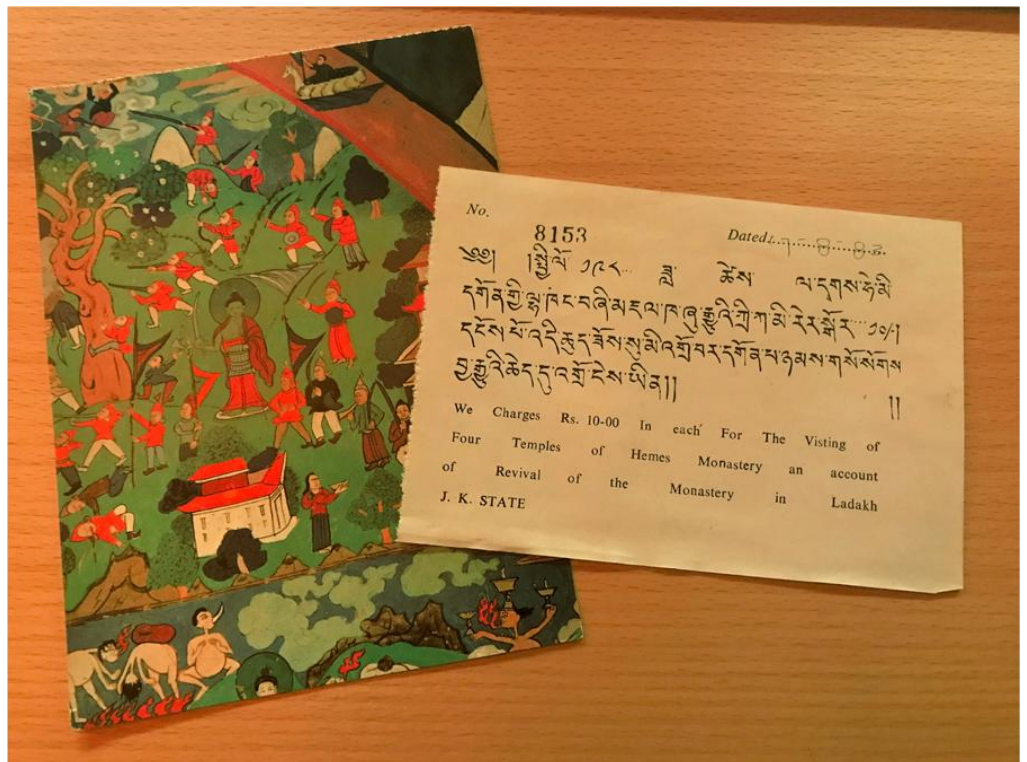 No.
8153
Dated
༄༅། །སྤྱི་ལོ་ ༡༩༨ ... ཟླ་ ཚེས་ ལ་དྭགས་ཧེ་མི་
དགོན་གྱི་ལྷ་ཁང་བཞི་མཇལ་ཁ་ཞུ་རྒྱུའི་ཀྲི་ཀ་མི་རེར་སྒོར་ ... ༡༠/།
དངོས་པོ་འདི་ཆུད་ཟོས་སུ་མི་འགྲོ་བར་དགོན་པ་ཉམས་གསོ་སོགས་
བྱ་རྒྱུའི་ཆེད་དུ་འགྲོ་ངེས་ཡིན།། །།
We Charges Rs. 10-00 In each For The Visting of
Four Temples of Hemes Monastery an account
of Revival of the Monastery in Ladakh
J. K. STATE